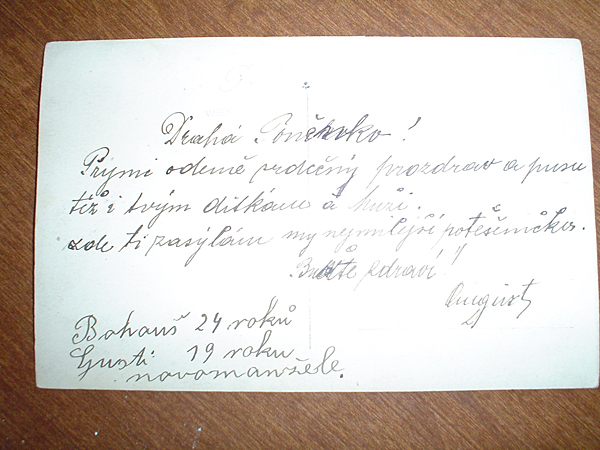 Drahá !
Prými odemě srdečný pozdrav a pusu
též i tvým dítkám a Muži.
zde ti zasýlám my nejmilejší potěšeníčko.
Buďte zdraví!
Bohouš 24 roků
Gusti: 19 roku
novomanžele.